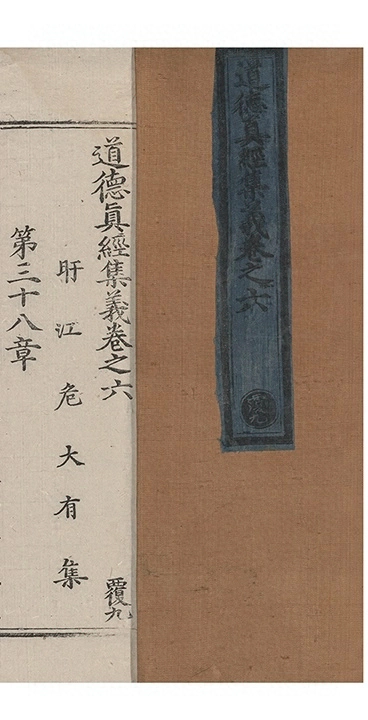 道德真經集義卷之六
覆九
道德眞經集義卷之六
覆九
盱江危大有集
第三十八章